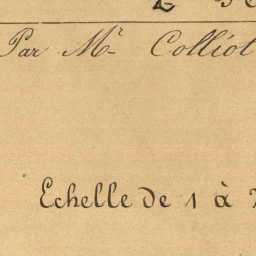 Par Mr Colliot
Echelle de 1 à